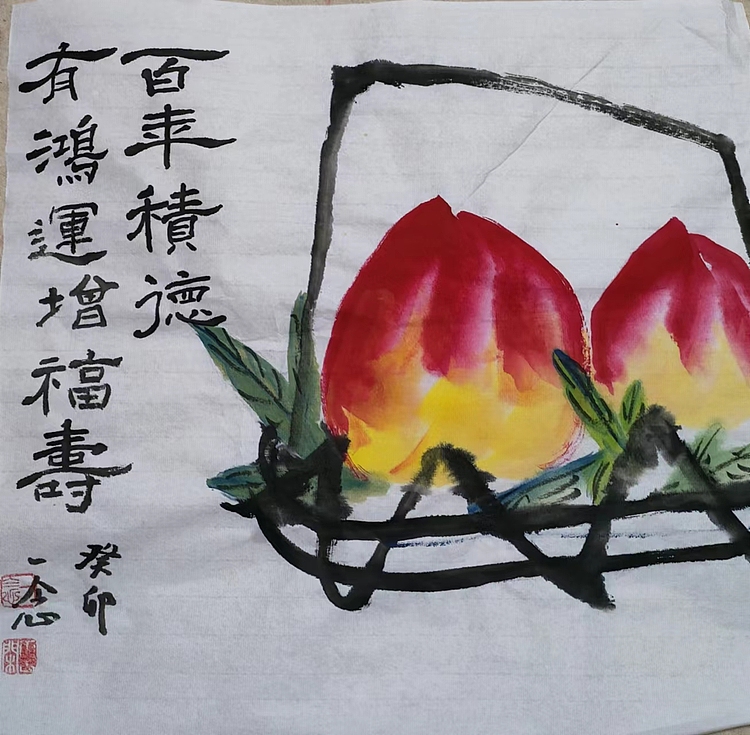 百年積德
有鴻運增福壽
癸卯
一念